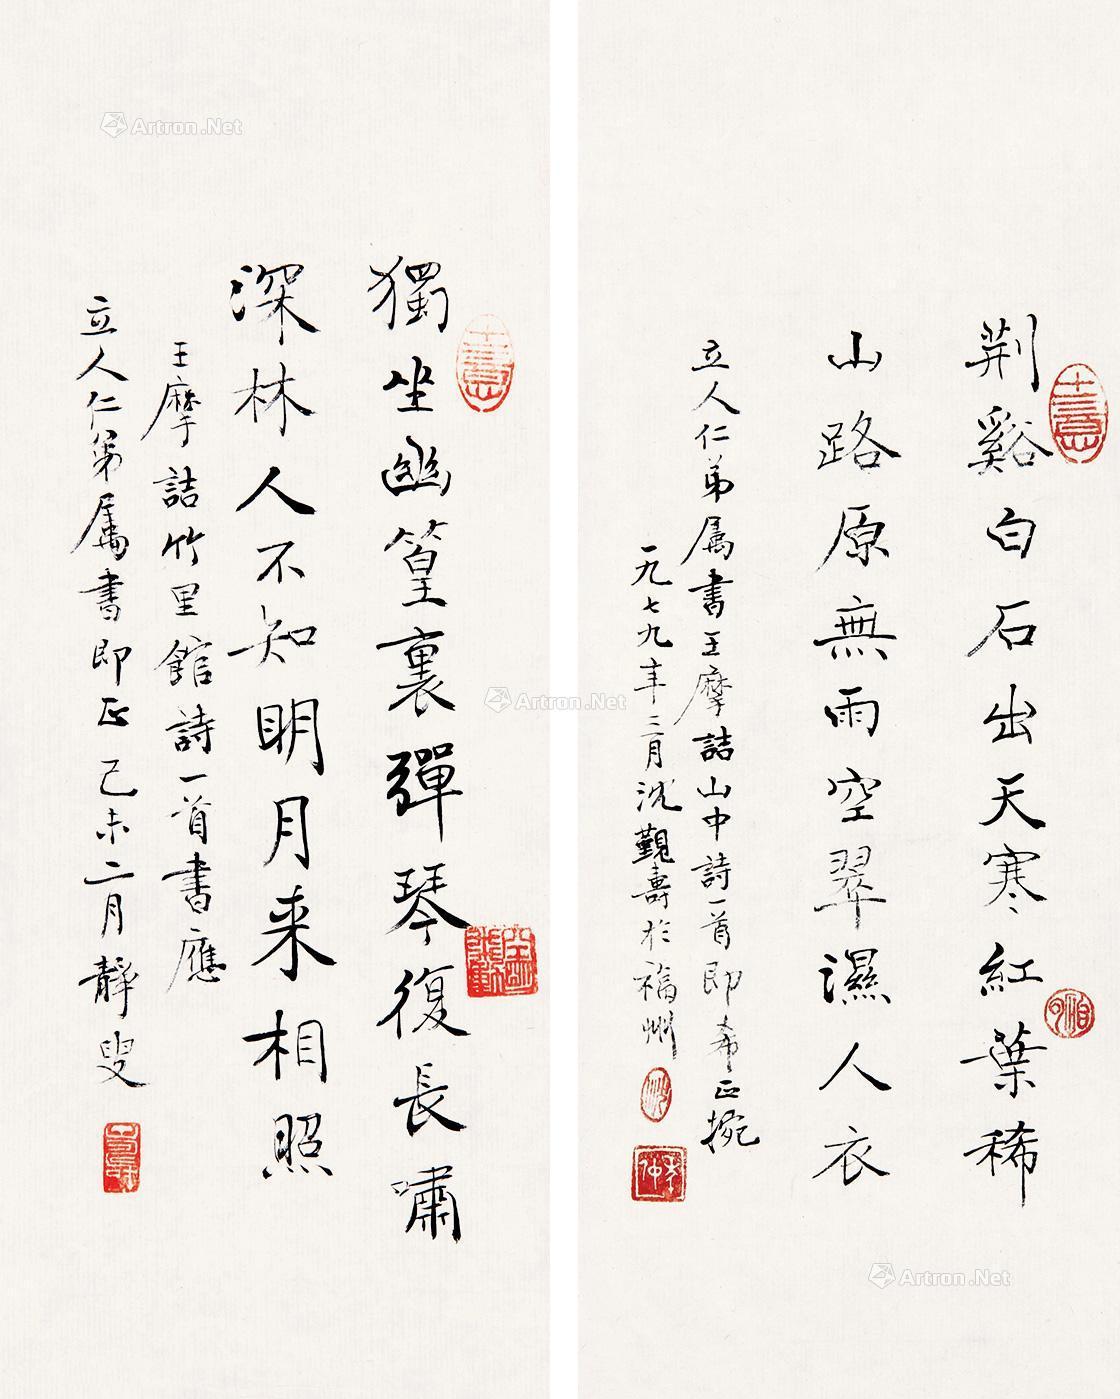 荆谿白石出天寒紅葉稀
山路原無雨空翠濕人衣
立人仁弟属書王摩詰山中詩一首即希正捥
一九七九年三月沈覲壽於福州
獨坐幽篁裏彈琴復長嘯
深林人不知明月来相照
王摩詰竹里館詩一首書應
立人仁弟属書即正己未二月靜叟
Artron.Net
Artron.Net
Artron.Net